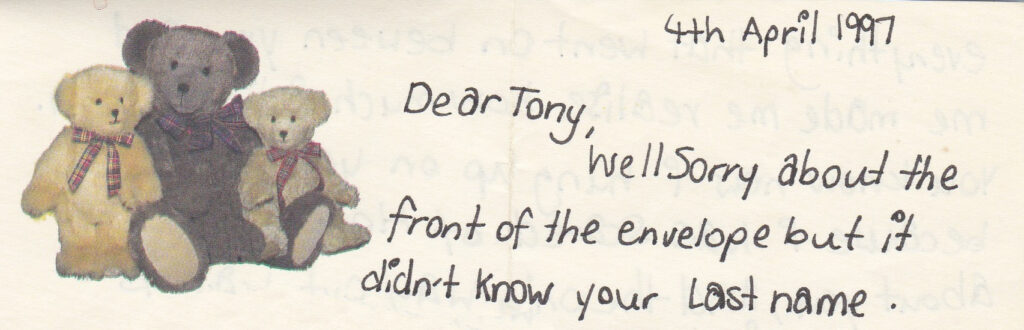 4th April 1997
Dear Tony,
Well Sorry about the
front of the envelope but it
didn't know your Last name .